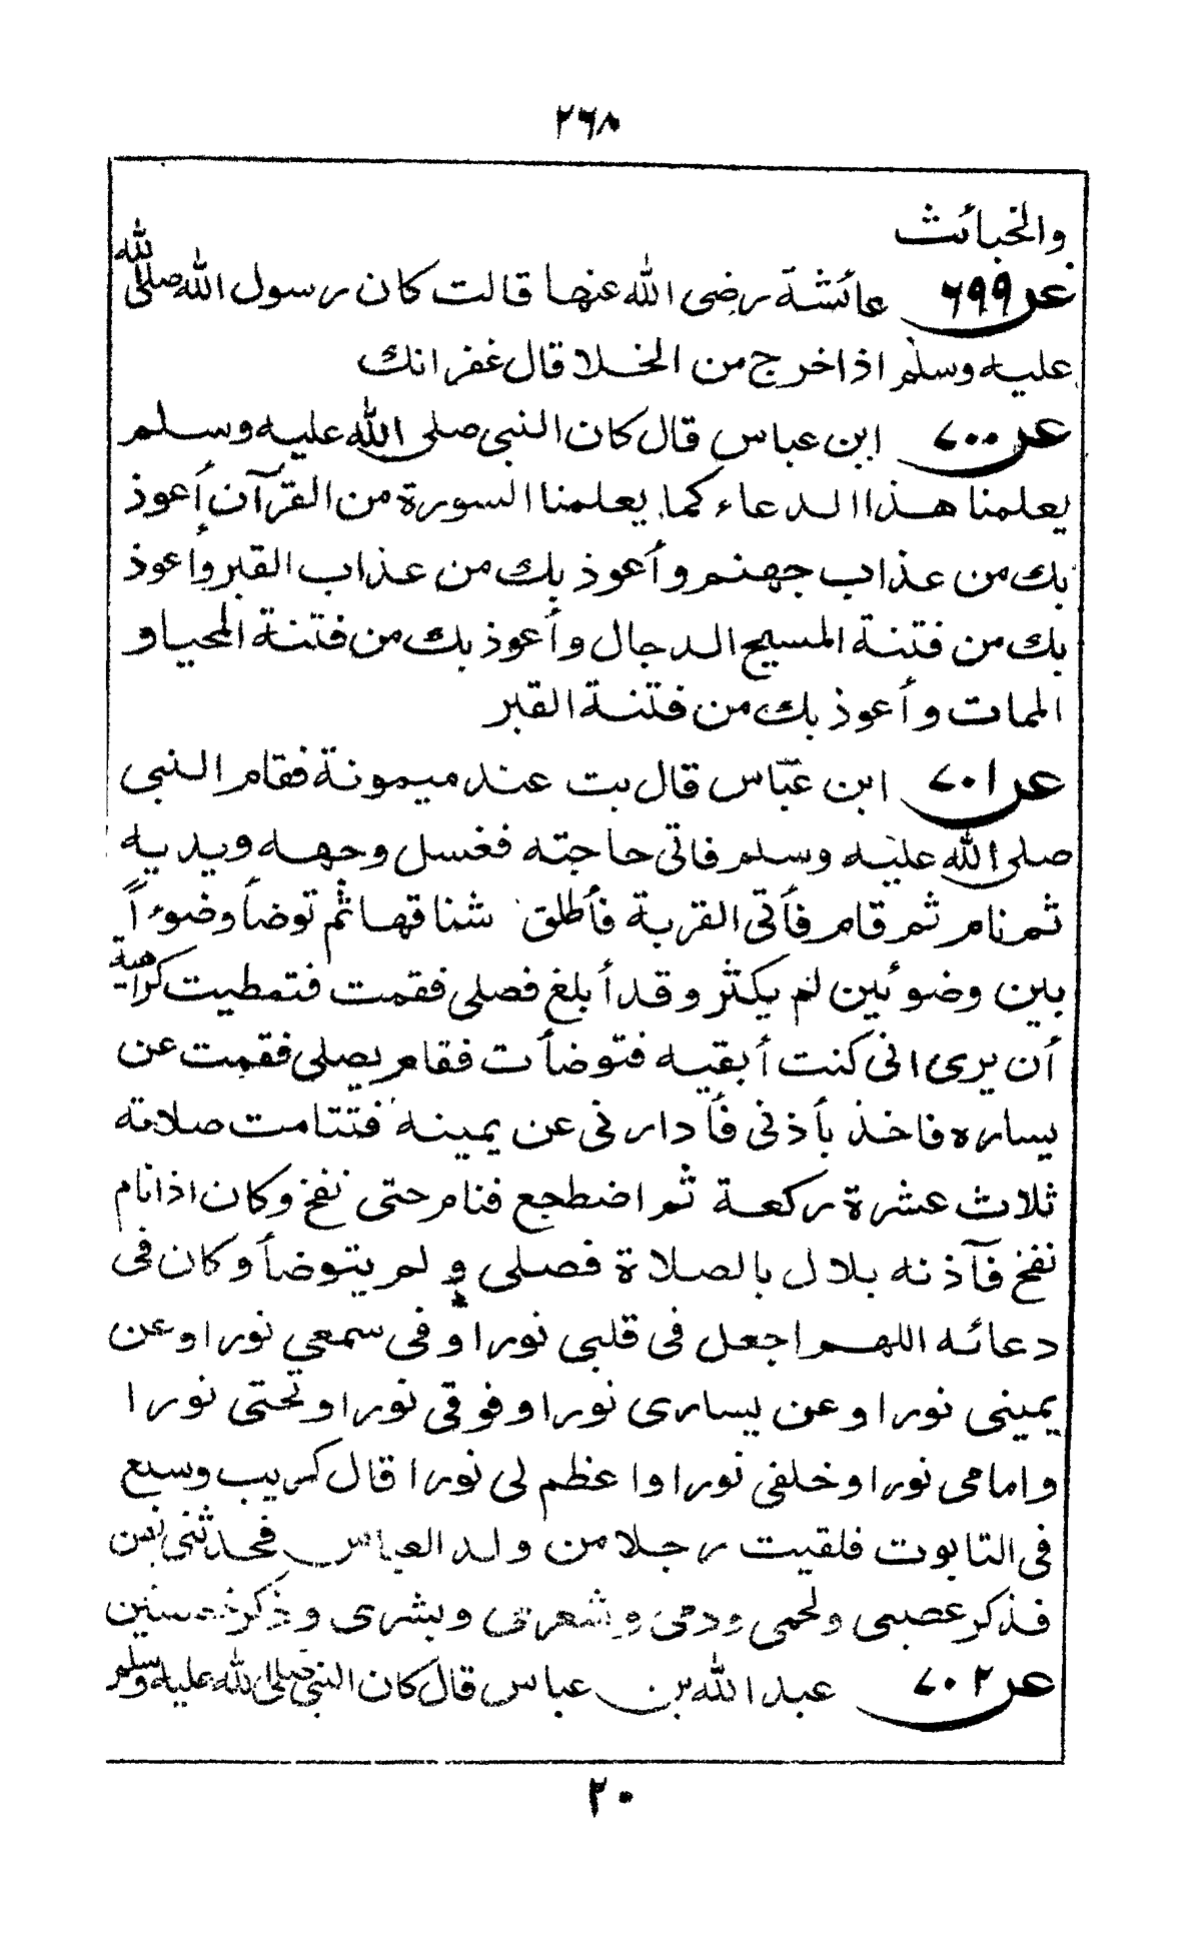 ٢٦٨
والخبائث
عن ٦٩٩ عائشة رضى الله عنها قالت كان رسول الله صلى الله
عليه وسلم اذا خرج من الخلا قال غفرانك
عن ٧٠٠ ابن عباس قال كان النبى صلى الله عليه وسلم
يعلمنا هذا الدعاء كما يعلمنا السورة من القرآن أعوذ
بك من عذاب جهنم وأعوذ بك من عذاب القبر وأعوذ
بك من فتنة المسيح الدجال وأعوذ بك من فتنة المحيا و
الممات وأعوذ بك من فتنة القبر
عن ٧٠١ ابن عبّاس قال بت عند ميمونة فقام النبى
صلى الله عليه وسلم فاتى حاجته فغسل وجهه ويديه
ثم نام ثم قام فأتى القربة فأطلق شناقها ثم توضأ وضوءاً
بين وضوئين لم يكثر وقد أبلغ فصلى فقمت فتمطيت كراهية
أن يرى انى كنت أبقيه فتوضأت فقام يصلى فقمت عن
يساره فاخذ بأذنى فأدارنى عن يمينه فتتامت صلاته
ثلاث عشرة ركعة ثم اضطجع فنام حتى نفخ وكان اذا نام
نفخ فآذنه بلال بالصلاة فصلى و لم يتوضأ وكان فى
دعائه اللهم اجعل فى قلبى نورا وفى سمعي نورا وعن
يمينى نورا وعن يسارى نورا وفوقى نورا وتحتى نورا
وامامى نورا وخلفى نورا واعظم لى نورا قال كريب وسبع
فى التابوت فلقيت رجلا من ولد العباس فحدثنى بهن
فذكر عصبى ولحمى ودمى وشعرى وبشرى وذكر خصستين
عن ٧٠٢ عبد الله بن عباس قال كان النبى صلى الله عليه وسلم
٢٠